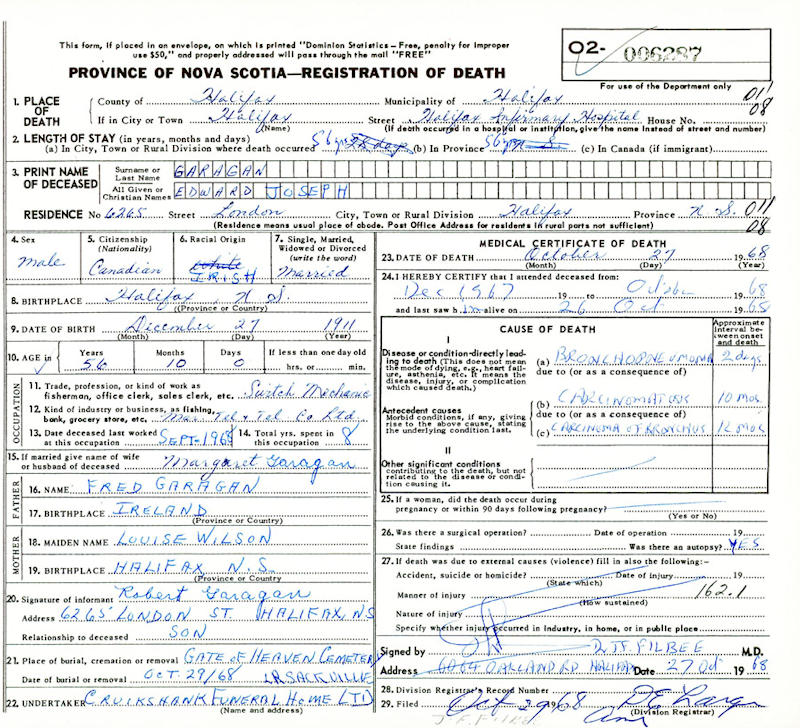 This form, if placed in an envelope, on which is printed "Dominion Statistics – Free, penalty for improper
use $50," and properly addressed will pass through the mail "FREE"
O2- 006287
PROVINCE OF NOVA SCOTIA—REGISTRATION OF DEATH
For use of the Department only
1. PLACE OF DEATH County of Halifax Municipality of Halifax 011
If in City or Town Halifax Street Halifax Infirmary Hospital House No. 08
(Name) (If death occurred in a hospital or institution, give the name instead of street and number)
2. LENGTH OF STAY (in years, months and days)
(a) In City, Town or Rural Division where death occurred 56 yrs (b) In Province 56 yrs (c) In Canada (if immigrant)
3. PRINT NAME OF DECEASED Surname or Last Name GARAGAN
All Given or Christian Names EDWARD JOSEPH
RESIDENCE No 6265 Street London City, Town or Rural Division Halifax Province N S. 011
(Residence means usual place of abode. Post Office Address for residents in rural parts not sufficient) 08
4. Sex Male
5. Citizenship (Nationality) Canadian
6. Racial Origin White IRISH
7. Single, Married, Widowed or Divorced (write the word) Married
8. BIRTHPLACE Halifax, N S.
(Province or Country)
9. DATE OF BIRTH December 27 1911
(Month) (Day) (Year)
10. AGE in Years 56 Months 10 Days 0 If less than one day old
hrs. or min.
OCCUPATION
11. Trade, profession, or kind of work as
fisherman, office clerk, sales clerk, etc. Switch Mechanic
12. Kind of industry or business, as fishing,
bank, grocery store, etc. Mar. Tel & Tel Co Ltd.
13. Date deceased last worked at this occupation SEPT-1968
14. Total yrs. spent in this occupation 8
15. If married give name of wife
or husband of deceased Margaret Garagan
FATHER
16. NAME FRED GARAGAN
17. BIRTHPLACE IRELAND
(Province or Country)
MOTHER
18. MAIDEN NAME LOUISE WILSON
19. BIRTHPLACE HALIFAX N.S.
(Province or Country)
20. Signature of informant Robert Garagan
Address 6265 LONDON ST. HALIFAX, NS
Relationship to deceased SON
21. Place of burial, cremation or removal GATE OF HEAVEN CEMETERY
Date of burial or removal OCT. 29/68 LR. SACKVILLE
22. UNDERTAKER CRUIKSHANK FUNERAL HOME LTD
(Name and address)
MEDICAL CERTIFICATE OF DEATH
23. DATE OF DEATH October 27 1968
(Month) (Day) (Year)
24. I HEREBY CERTIFY that I attended deceased from:
Dec 1967 19 to October 1968
and last saw him alive on 26 Oct 1968
CAUSE OF DEATH
Approximate interval between onset and death
I
Disease or condition directly leading to death (This does not mean the mode of dying, e.g., heart failure, asthenia, etc. It means the disease, injury, or complication which caused death.)
(a) BRONCHOPNEUMONIA 2 days
due to (or as a consequence of)
Antecedent causes
Morbid conditions, if any, giving rise to the above cause, stating the underlying condition last.
(b) CARCINOMATOSIS 10 mos
due to (or as a consequence of)
(c) CARCINOMA OF BRONCHUS 12 mos.
II
Other significant conditions
contributing to the death, but not related to the disease or condition causing it.
25. If a woman, did the death occur during
pregnancy or within 90 days following pregnancy?
(Yes or No)
26. Was there a surgical operation? Date of operation 19
State findings Was there an autopsy? YES
27. If death was due to external causes (violence) fill in also the following:-
Accident, suicide or homicide? Date of injury 19
(State which)
Manner of injury 162.1
(How sustained)
Nature of injury
Specify whether injury occurred in industry, in home, or in public place
Signed by D. J. FILBEE M.D.
Address 6064 OAKLAND RD HALIFAX Date 27 Oct 1968
28. Division Registrar's Record Number
29. Filed Oct 29 1968
(Division Registrar)